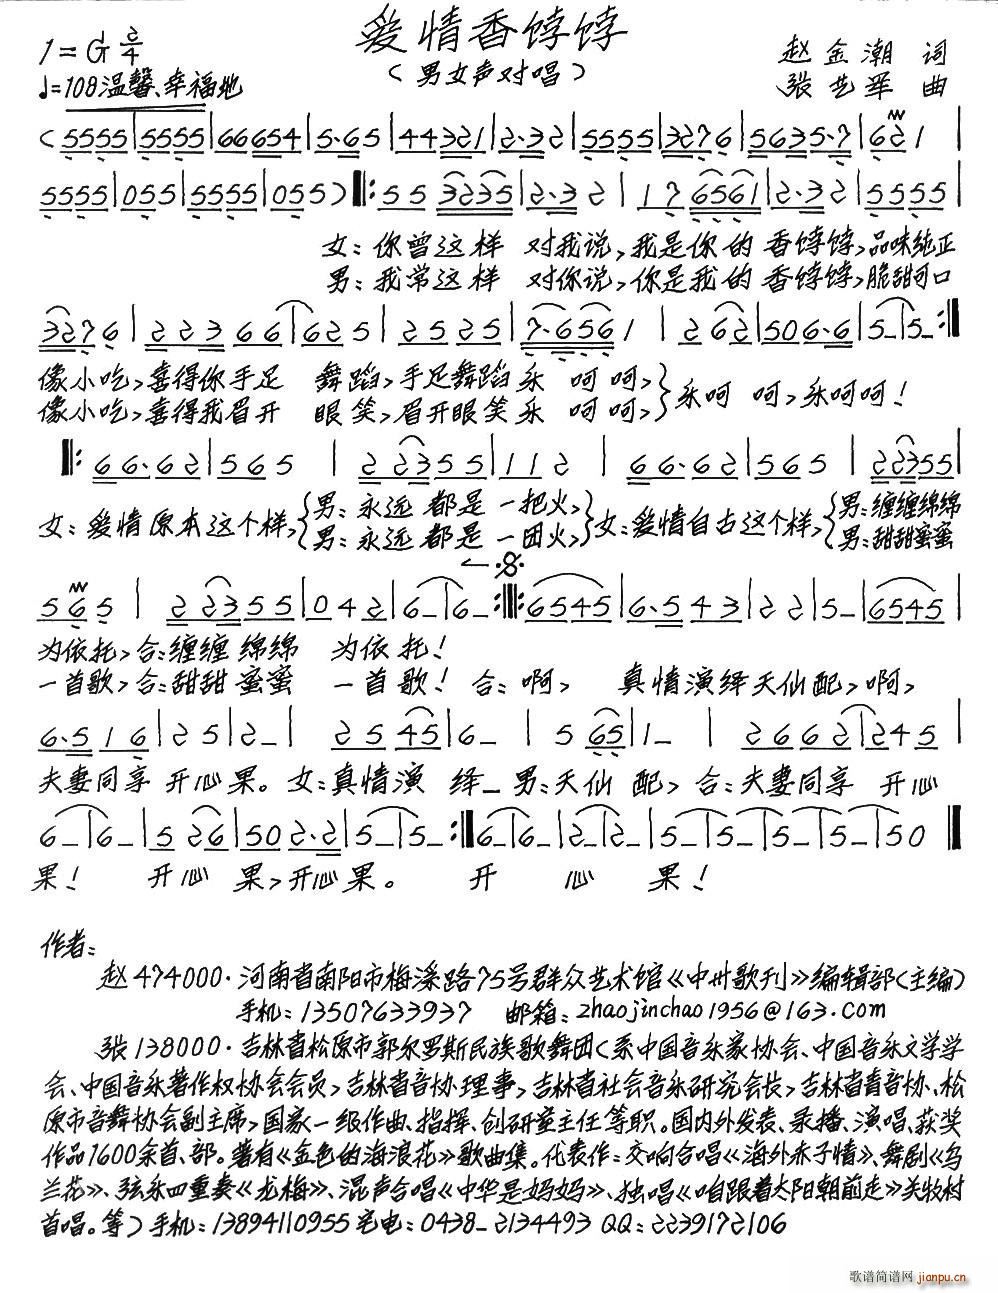 爱情香饽饽
1=G 2/4
(男女声对唱)
赵金潮 词
♩=108 温馨、幸福地
张艺军 曲
(5555|5555|66654|5·65|44321|2·32|5555|3276|5635·7|621|
5555|055|5555|055)‖:55 3235|2·32|17 6561|2·32|5555|
女:你曾这样 对我说,我是你的 香饽饽,品味纯正
男:我常这样 对你说,你是我的 香饽饽,脆甜可口
3276|22366|625|2525|7·6561|262|506·6|5_|5_:‖
像小吃,喜得你手足 舞蹈,手足舞蹈乐 呵呵,
像小吃,喜得我眉开 眼笑,眉开眼笑乐 呵呵,
}乐呵 呵,乐呵呵!
‖:66·62|565|22355|112|66·62|565|22355|
女:爱情原本这个样,{男:永远 都是 一把火,}女:爱情自古这个样,{男:缠缠绵绵
男:永远 都是 一团火, 男:甜甜蜜蜜
565|22355|042|6_|6_:‖:6545|6·543|22|5_|6545|
为依托,合:缠缠 绵绵 为依托!
一首歌,合:甜甜 蜜蜜 一首歌! 合:啊, 真情演绎天仙配,啊,
6·516|25|2_|2545|6_|565|1_|2662|245|
夫妻同享 开心果。女:真情演 绎_男:天仙 配,合:夫妻同享 开心
6_|6_|526|502·2|5_|5_:‖6_|6_|2_|2_|5_|5_|5_|5_|50‖
果! 开心 果,开心果。 开 心 果!
作者:
赵474000·河南省南阳市梅溪路75号群众艺术馆《中州歌刊》编辑部(主编)
手机:13507633937 邮箱:zhaojinchao1956@163.com
张138000·吉林省松原市郭尔罗斯民族歌舞团(系中国音乐家协会、中国音乐文学学
会、中国音乐著作权协会会员,吉林省音协理事,吉林省社会音乐研究会长,吉林省音协、松
原市音舞协会副主席,国家一级作曲、指挥、创研室主任等职。国内外发表、录播、演唱、获奖
作品1600余首、部。著有《金色的海浪花》歌曲集。代表作:交响合唱《海外赤子情》、舞剧《乌
兰花》、弦乐四重奏《龙梅》、混声合唱《中华是妈妈》、独唱《咱跟着太阳朝前走》关牧村
首唱。等)手机:13894110955 宅电:0438_2134493 QQ:2239172106
歌谱简谱网 jianpu.cn